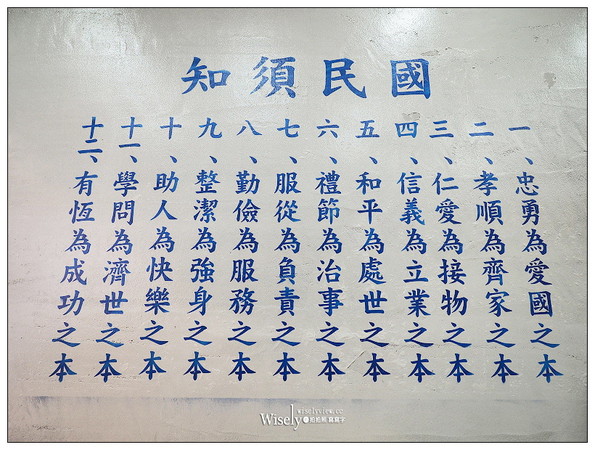 國民須知
一、忠勇為愛國之本
二、孝順為齊家之本
三、仁愛為接物之本
四、信義為立業之本
五、和平為處世之本
六、禮節為治事之本
七、服從為負責之本
八、勤儉為服務之本
九、整潔為強身之本
十、助人為快樂之本
十一、學問為濟世之本
十二、有恆為成功之本
wiselyview.cc
Wisely